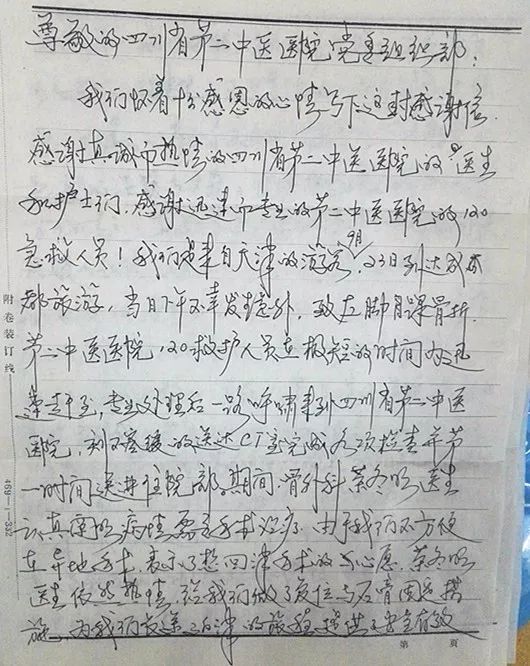 尊敬的四川省第二中医医院党委组织部:
我们怀着十分感恩的心情写下这封感谢信.
感谢真诚而热情的四川省第二中医医院的医生
和护士们.感谢迅速而专业的第二中医医院的120
急救人员!我们是来自天津的游客,9月23日到达成
都旅游,当日下午不幸发生意外,致左脚踝骨折.
第二中医医院120救护人员在极短的时间内迅
速赶至,专业处理后一路呼啸来到四川省第二中医
医院,刻不容缓的送达CT室完成各项检查并第
一时间送进住院部.期间骨外科 医生
认真 病情需手术治疗.由于我们不方便
在异地手术,表示了想回津手术的心愿.
医生依然热情,给我们做了复位与石膏固定措
施,为我们 的旅程提供了安全有效
附卷装订线
469-1-332
第 页